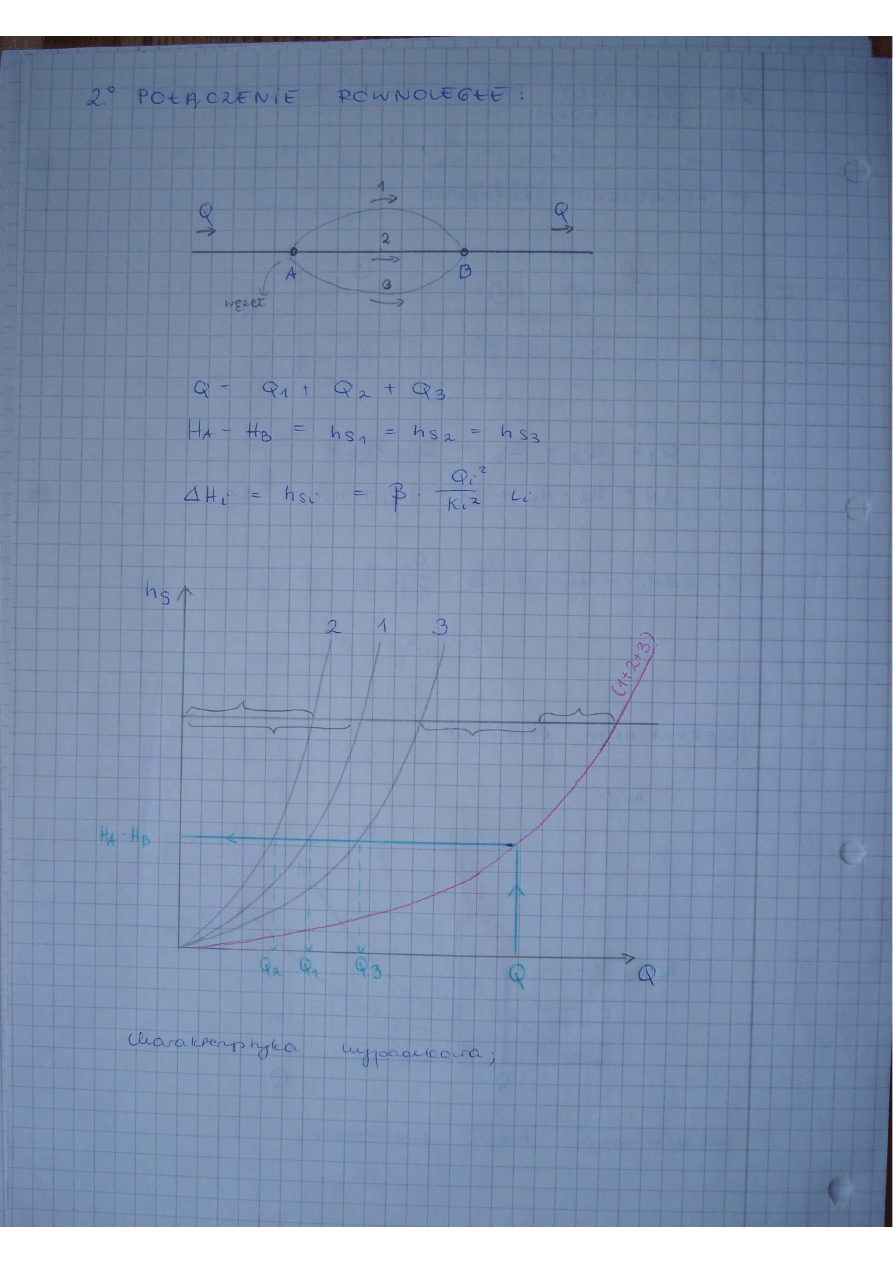 2° POŁĄCZENIE RÓWNOLEGŁE:
1
Q Q
2
A B
3
węzeł
Q = Q1 + Q2 + Q3
HA - HB = hs1 = hs2 = hs3
ΔHi = hsi = β · Qi²/Ki² · Li
hs
2 1 3
(1+2+3)
HA-HB
Q2 Q1 Q3 Q Q
charakterystyka wypadkowa;